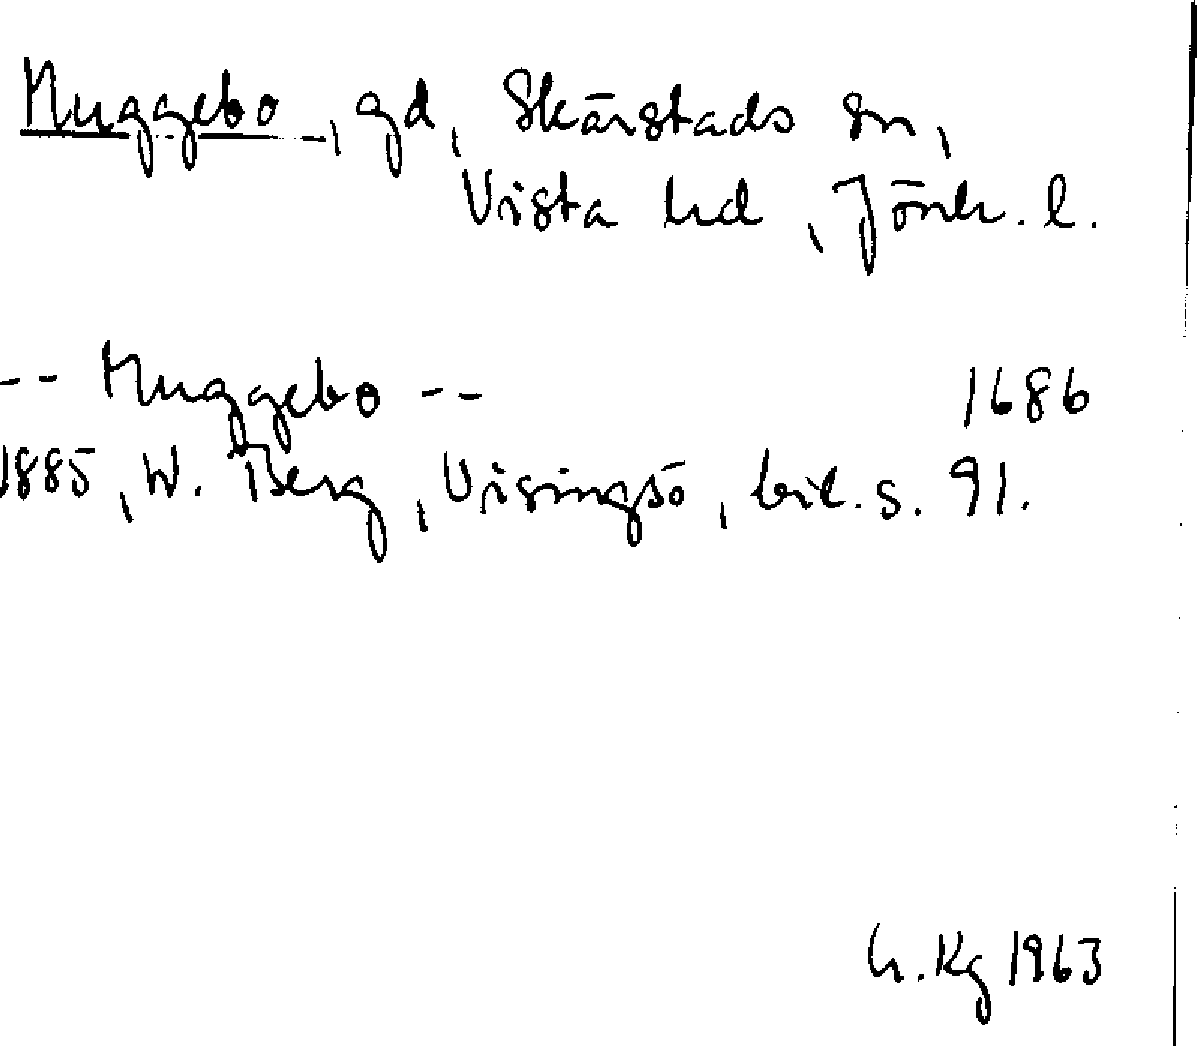 Muggebo, gd, Skärstads sn,
Vista hd, Jönk. l.
-- Muggebo -- 1686
1885, W. Berg, Visingsö, bil. s. 91.
G. Kg 1963